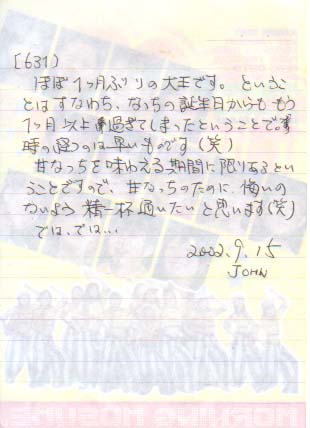 [631]
ほぼ1ヶ月ぶりの大王です。ということ
とはすなわち、なっちの誕生日からももう
1ヶ月以上過ぎてしまったということで。
時の経つのは早いものです(笑)
甘なっちを味わえる期間に限りあるとい
うことですので、甘なっちのために、悔いの
ないよう精一杯通いたいと思います(笑)
では、では…
2002.9.15
JOHN